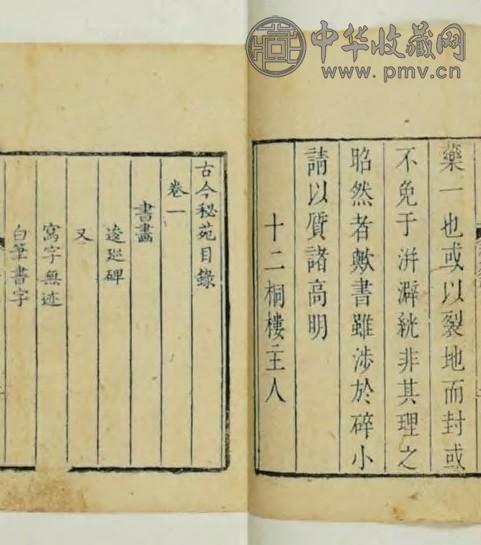 中华收藏网
www.pmv.cn
藥一也或以裂地而封或
不免于洴澼絖非其理之
昭然者歟書雖涉於碎小
請以質諸高明
十二桐樓主人
古今秘苑目錄
卷一
書畫
逡廵碑
又
寫字無迹
白筆書字